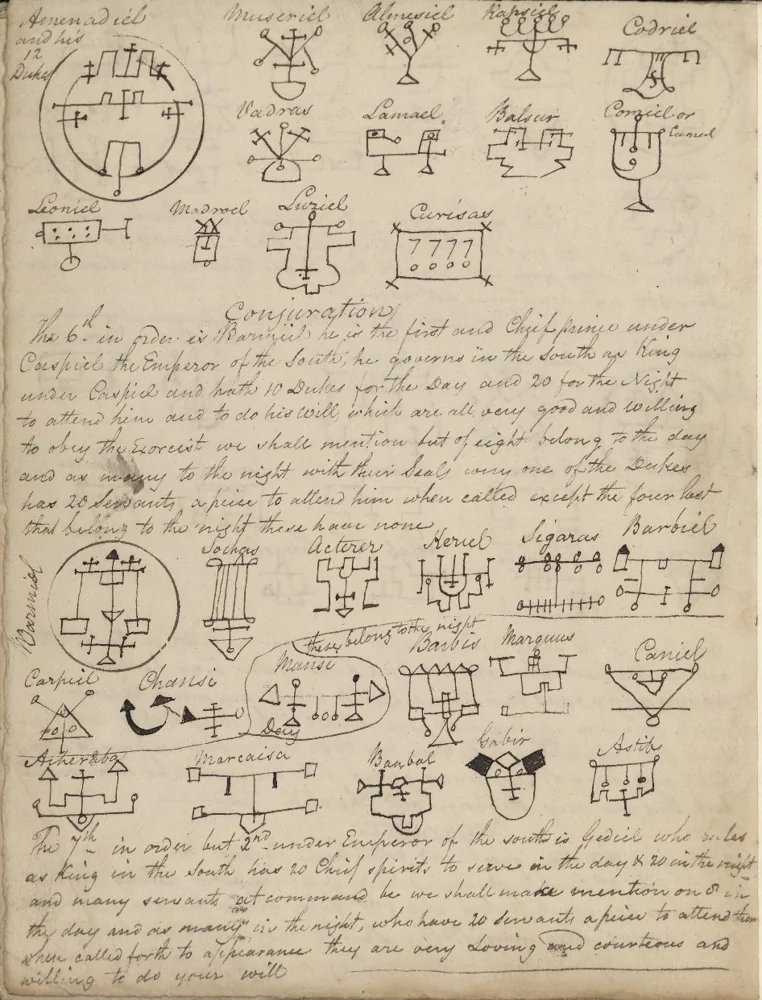 Amenadiel Museriel Almesiel Rapsiel Codriel
and his
12
Dukes
Vadras Lamael Balsur Comiel or
Camel
Leoniel Madroel Luziel Curisas
7 7 7 7
Conjuration
The 6th in order is Barmiel he is the first and Chief prince under
Caspiel the Emperor of the South, he governs in the South as King
under Caspiel and hath 10 Dukes for the Day and 20 for the Night
to attend him and to do his will, which are all very good and willing
to obey the Exorcist we shall mention but of eight belong to the day
and as many to the night with their Seals every one of the Dukes
has 20 Servants, a piece to attend him when called except the four last
that belong to the night these have none
Barmiel Sochas Acterer Keriel Sigaras Barbiel
these belong to the night
Carpiel Chansi Mansi Barbis Marquus Caniel
Day
Acheraba Marcaisa Baabal Gabir Astib
The 7th in order but 2nd under Emperor of the South is Gediel who rules
as King in the South has 20 Chief spirits to serve in the day & 20 in the night
and many servants at command be we shall make mention on 8 in
the day and as many in the night, who have 20 servants a piece to attend them
when called forth to appearance they are very Loving and courteous and
willing to do your will